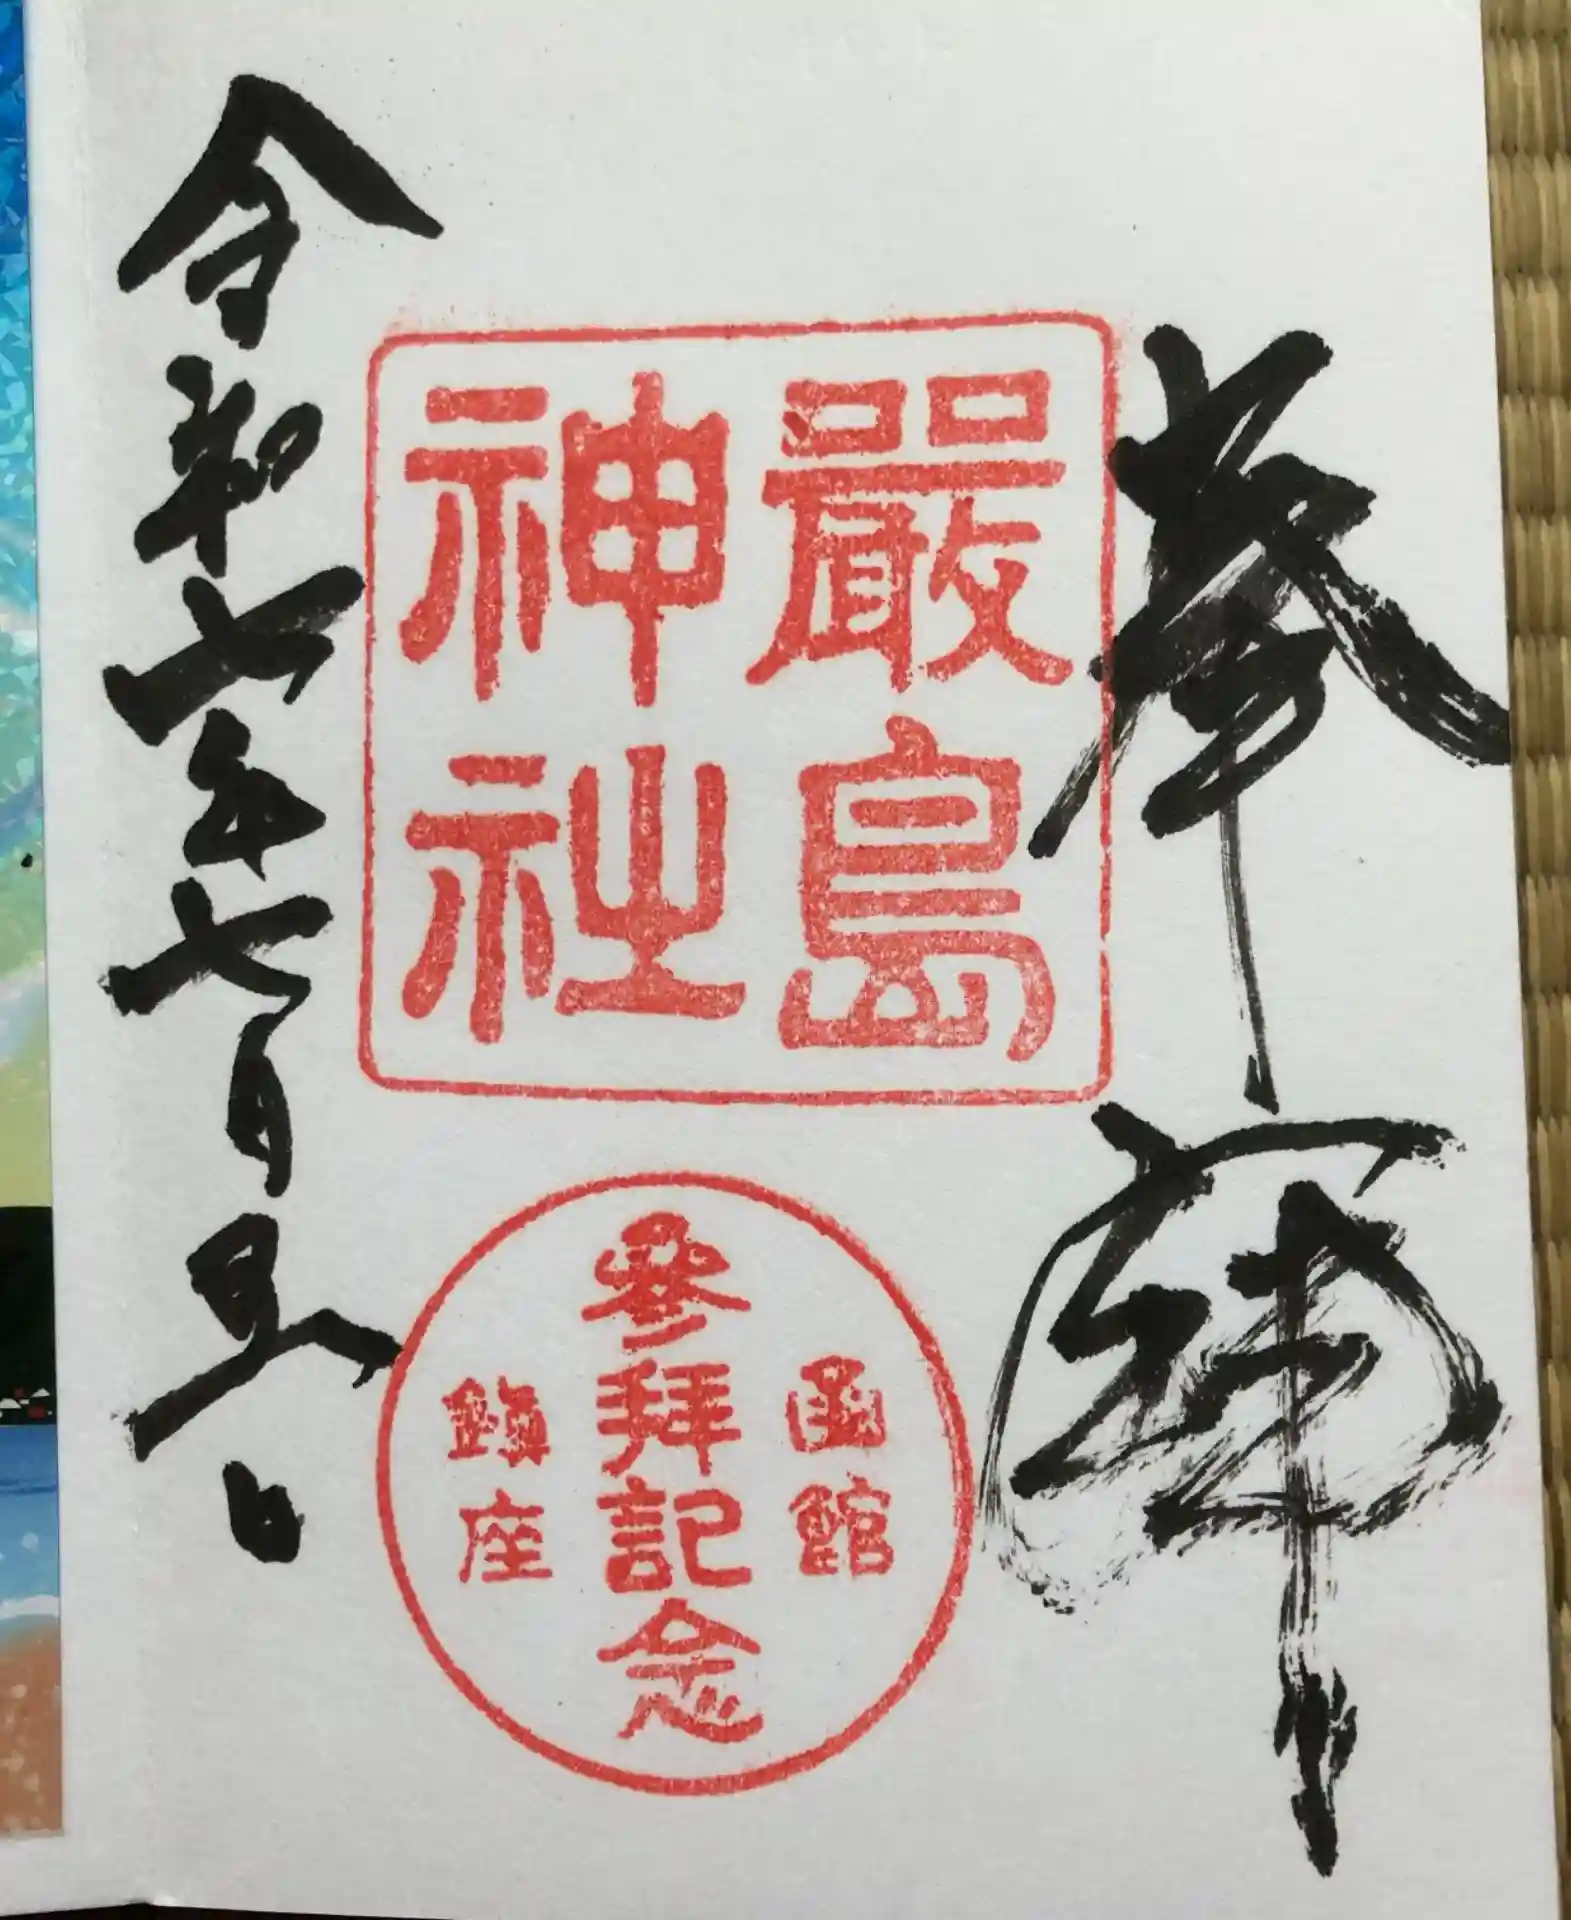 奉拝
嚴島
神社
函館
參拜記念
鎮座
令和七年七月五日